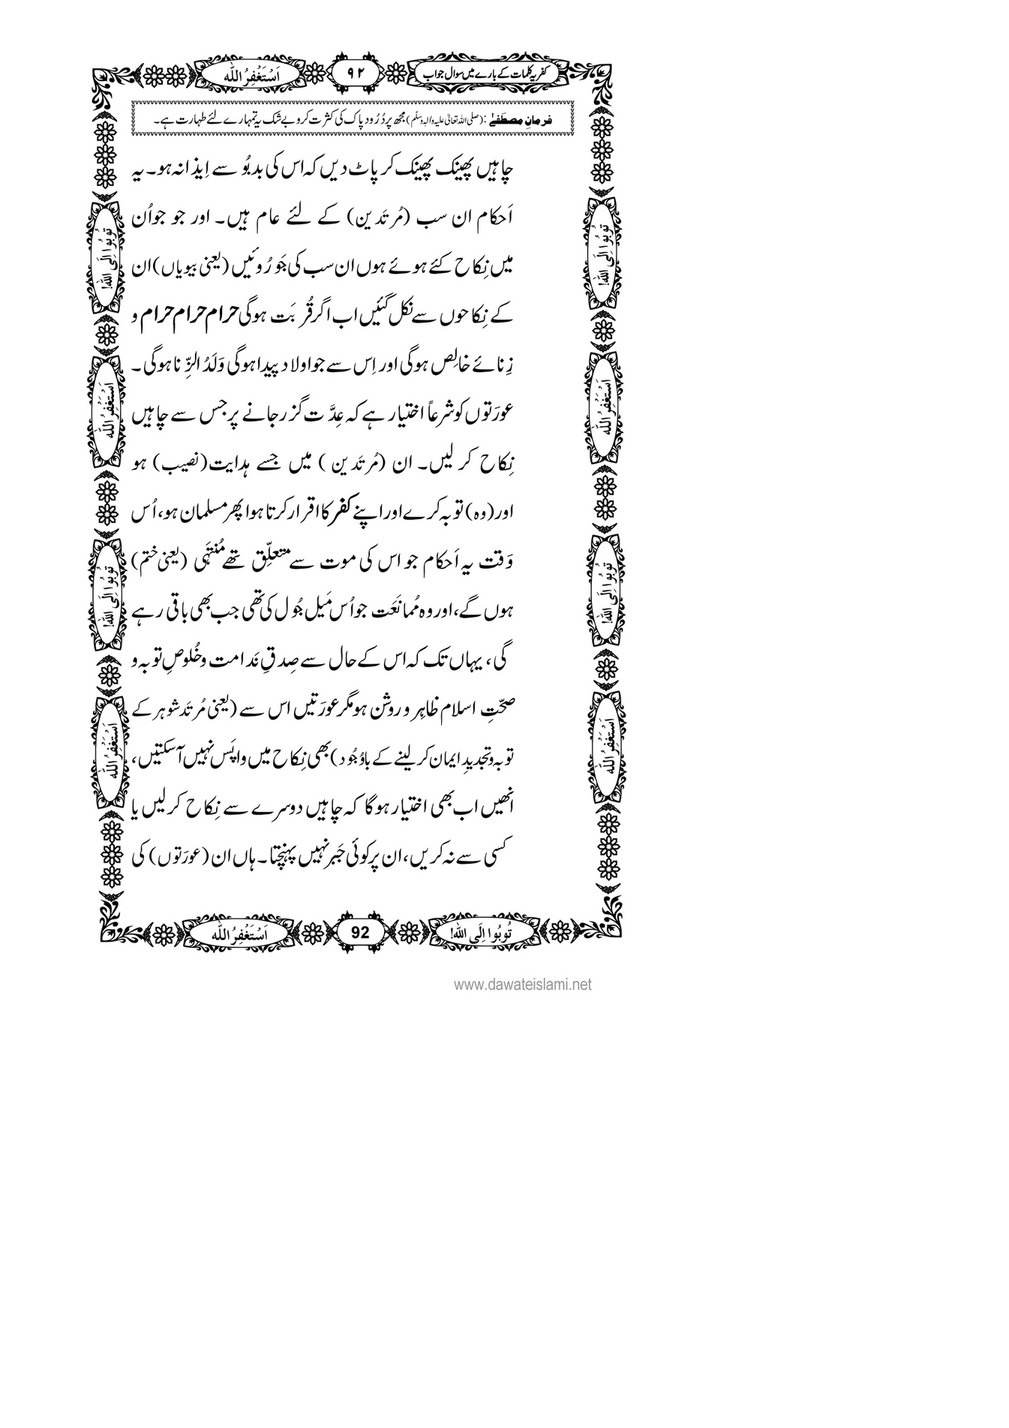 کفریہ کلمات کے بارے میں سوال جواب ۹۲ اَسْتَغْفِرُ اللّٰه
فرمانِ مصطَفٰے : (صلی اللہ تعالیٰ علیہ والہٖ وسلّم) مجھ پر دُرُود پاک کی کثرت کرو بے شک یہ تمہارے لئے طہارت ہے۔
چاہیں پھینک پھینک کر پاٹ دیں کہ اس کی بدبُو سے اِیذا نہ ہو۔ یہ
اَحکام ان سب (مُرتَدین) کے لئے عام ہیں۔ اور جو جو اُن
میں نِکاح کئے ہوئے ہوں ان سب کی جَورُوئیں (یعنی بیویاں) ان
کے نِکاحوں سے نکل گئیں اب اگر قُربَت ہوگی حرام حرام حرام و
زِنائے خالِص ہوگی اور اِس سے جو اولاد پیدا ہوگی وَلَدُ الزِّنا ہوگی۔
عورَتوں کو شرعاً اختیار ہے کہ عِدَّت گزر جانے پر جس سے چاہیں
نِکاح کر لیں۔ ان (مُرتَدین) میں جسے ہدایت (نصیب) ہو
اور (وہ) توبہ کرے اور اپنے کفر کا اقرار کرتا ہوا پھر مسلمان ہو، اُس
وَقت یہ اَحکام جو اس کی موت سے متعلِّق تھے مُنتَہی (یعنی ختم)
ہوں گے، اور وہ مُمانَعَت جو اُس مَیل جُول کی تھی جب بھی باقی رہے
گی، یہاں تک کہ اس کے حال سے صِدقِ نَدامت و خُلوصِ توبہ و
صحّتِ اسلام ظاہِر و روشن ہو مگر عورَتیں اس سے (یعنی مُرتَد شوہر کے
توبہ و تجدیدِ ایمان کر لینے کے باوُجُود) بھی نِکاح میں واپَس نہیں آسکتیں،
انھیں اب بھی اختیار ہوگا کہ چاہیں دوسرے سے نِکاح کر لیں یا
کسی سے نہ کریں، ان پر کوئی جَبر نہیں پہنچتا۔ ہاں ان (عورَتوں) کی
تُوبُوا اِلَی اللّٰه! 92 اَسْتَغْفِرُ اللّٰه
تُوبُوا اِلَی اللّٰه!
اَسْتَغْفِرُ اللّٰه
تُوبُوا اِلَی اللّٰه!
اَسْتَغْفِرُ اللّٰه
تُوبُوا اِلَی اللّٰه!
اَسْتَغْفِرُ اللّٰه
تُوبُوا اِلَی اللّٰه!
اَسْتَغْفِرُ اللّٰه
www.dawateislami.net